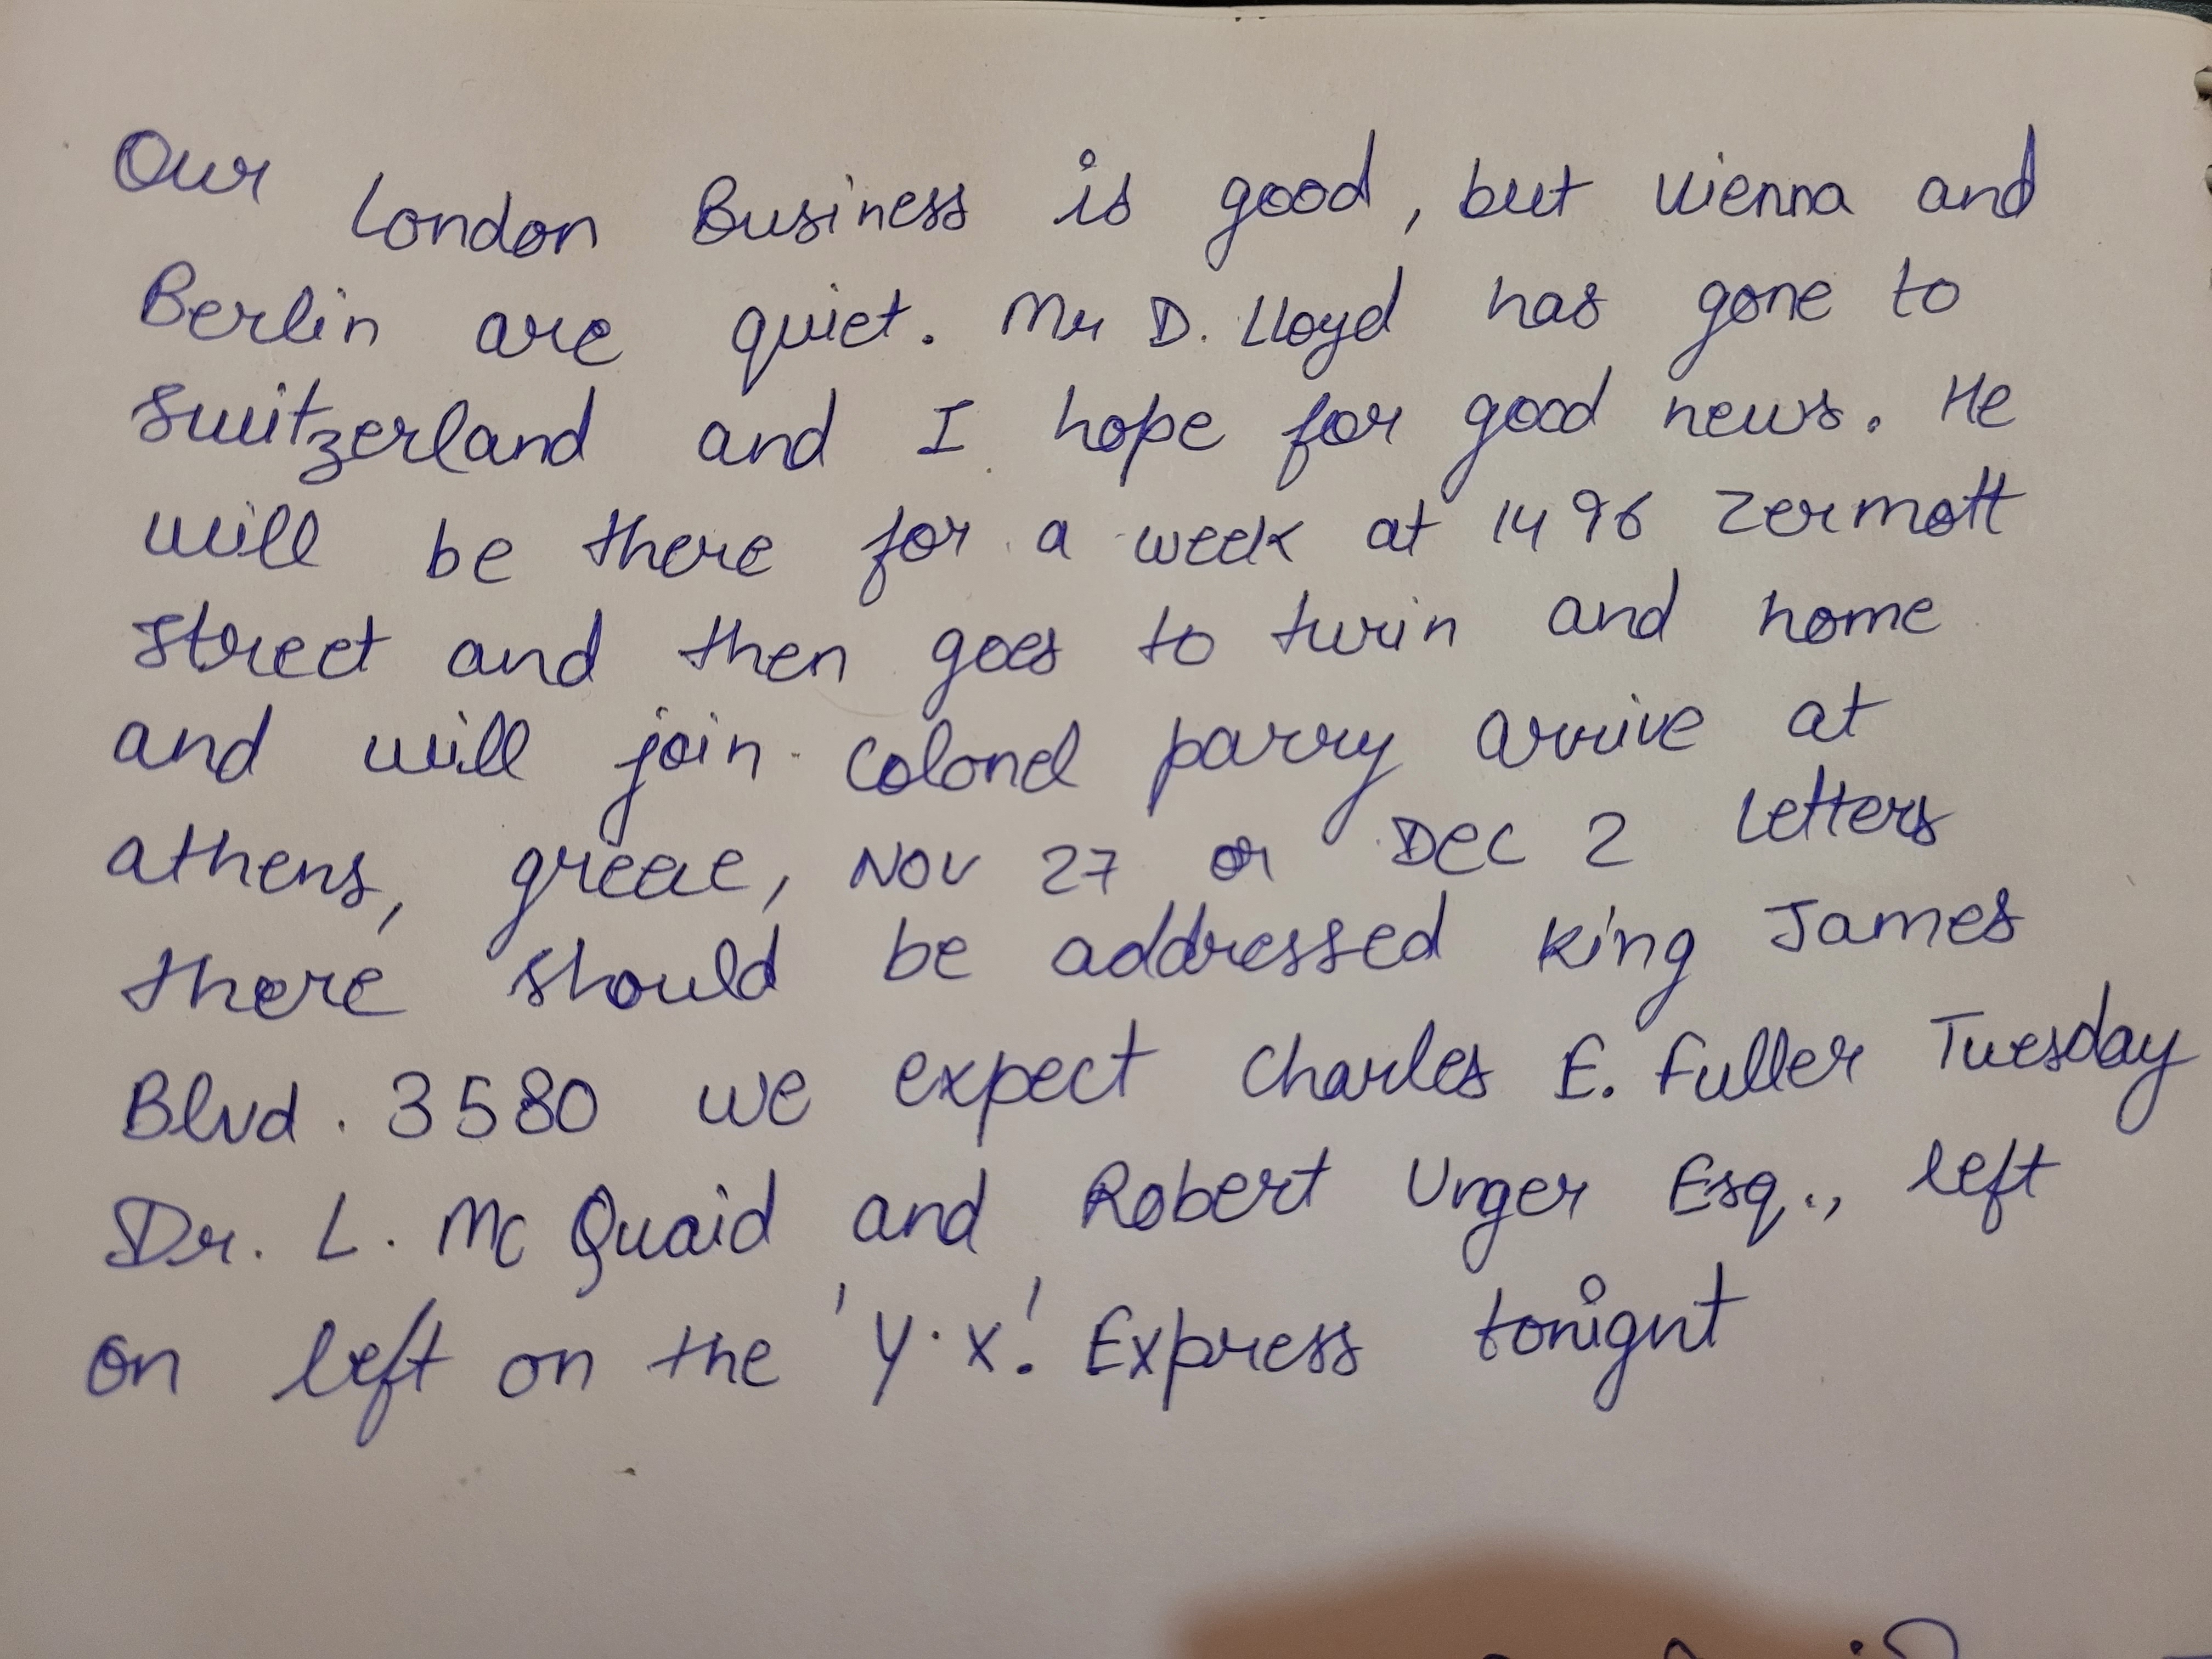 Our London Business is good, but vienna and
Berlin are quiet. Mr D. Lloyd has gone to
Switzerland and I hope for good news. He
will be there for a week at 1496 Zermott
Street and then goes to turin and home
and will join colonel parry arrive at
athens, greece, Nov 27 or Dec 2 Letters
there should be addressed King James
Blvd. 3580 we expect Charles E. Fuller Tuesday
Dr. L. Mc Quaid and Robert Unger Esq., left
on left on the 'Y.X.' Express tonight